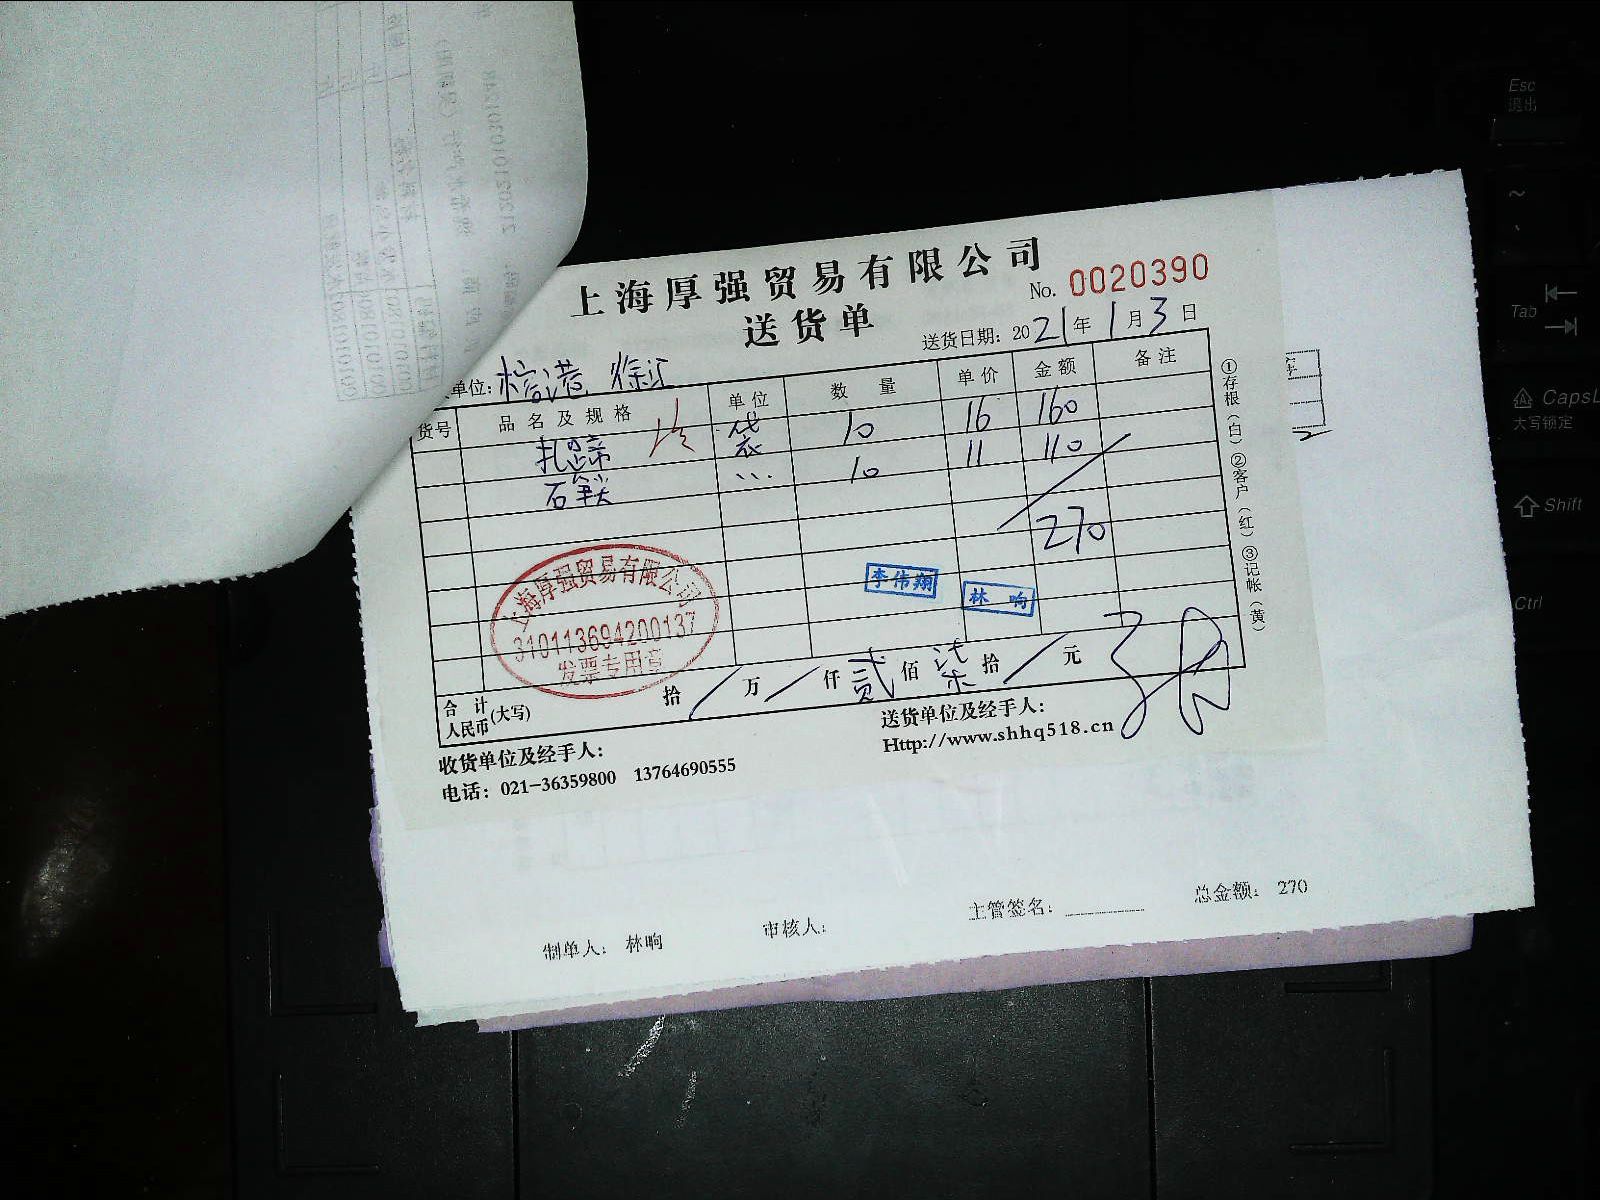 上海厚强贸易有限公司
No. 0020390
送货单
送货日期: 2021年1月3日
单位:
货号 品名及规格 单位 数量 单价 金额 备注
袋 10 16 160
10 11 110
270
李伟翔 林响
上海厚强贸易有限公司
310113694200137
发票专用章
合计人民币(大写) 拾 / 万 / 仟 贰 佰 柒 拾 / 元
收货单位及经手人:
送货单位及经手人:
电话: 021-36359800 13764690555
Http://www.shhq518.cn
①存根(白) ②客户(红) ③记帐(黄)
制单人: 林响 审核人: 主管签名: 总金额: 270
Esc
退出
Tab
CapsL
大写锁定
Shift
Ctrl